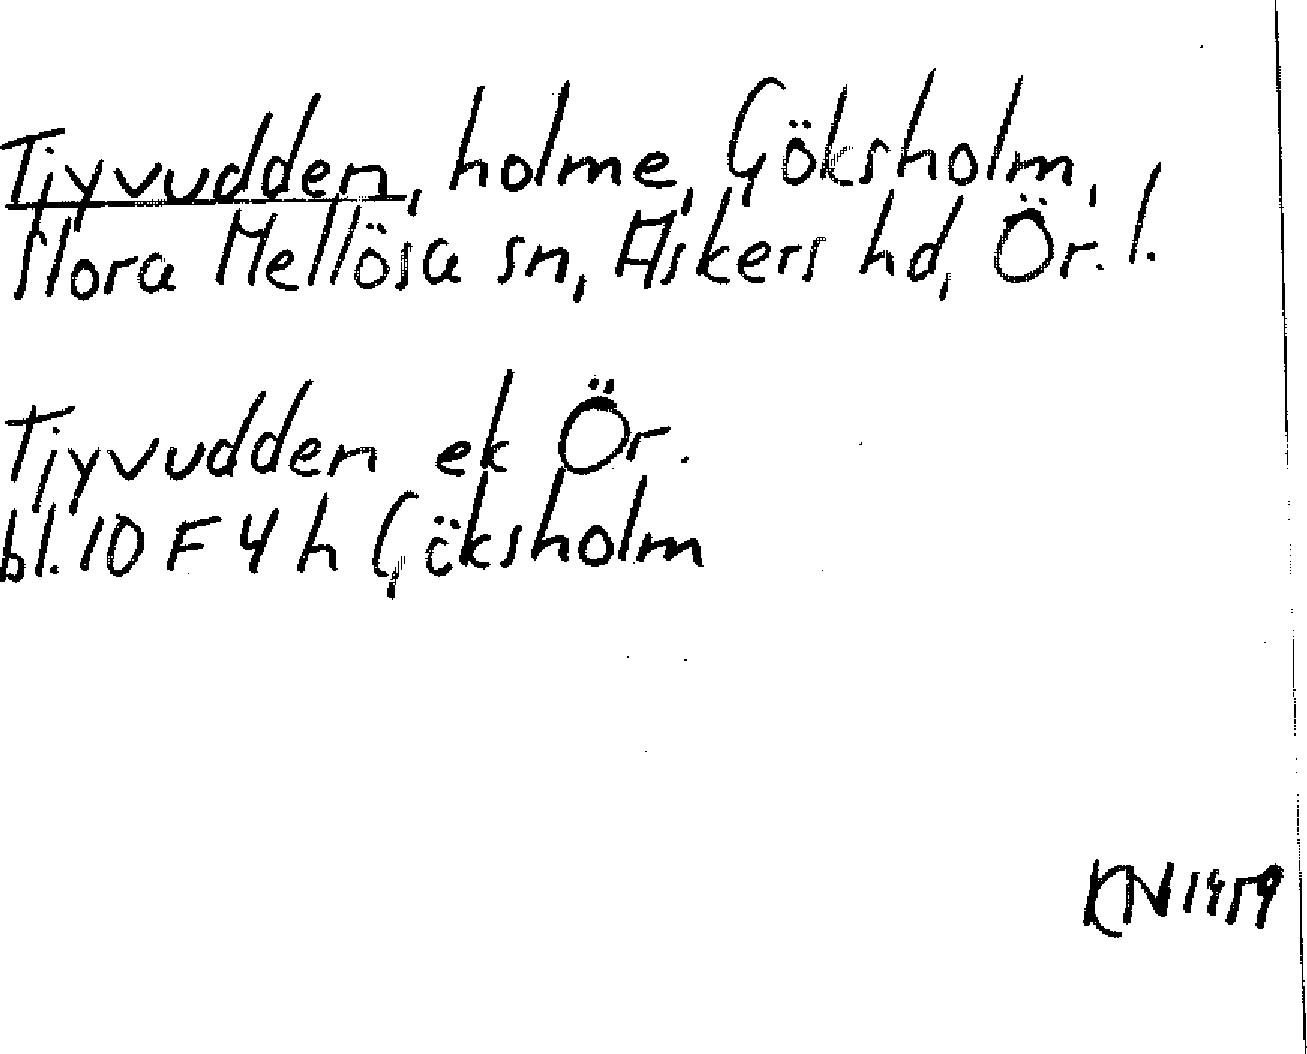 Tjyvudden, holme, Göksholm,
Stora Mellösa sn, Askers hd, Ör. l.
Tjyvudden ek Ör.
bl. 10 F 4 h Göksholm
KN 1459